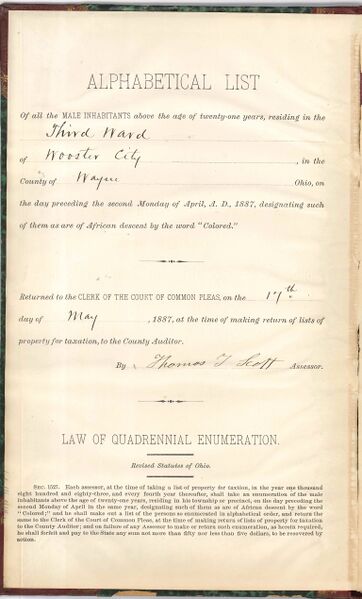 ALPHABETICAL LIST
Of all the MALE INHABITANTS above the age of twenty-one years, residing in the
Third Ward
of Wooster City, in the
County of Wayne Ohio, on
the day preceding the second Monday of April, A. D., 1887, designating such
of them as are of African descent by the word "Colored."
Returned to the CLERK OF THE COURT OF COMMON PLEAS, on the 17th
day of May, 1887, at the time of making return of lists of
property for taxation, to the County Auditor.
By Thomas T Scott Assessor.
LAW OF QUADRENNIAL ENUMERATION.
Revised Statutes of Ohio.
SEC. 1527. Each assessor, at the time of taking a list of property for taxation, in the year one thousand
eight hundred and eighty-three, and every fourth year thereafter, shall take an enumeration of the male
inhabitants above the age of twenty-one years, residing in his township or precinct, on the day preceding the
second Monday of April in the same year, designating such of them as are of African descent by the word
"Colored;" and he shall make out a list of the persons so enumerated in alphabetical order, and return the
same to the Clerk of the Court of Common Pleas, at the time of making return of lists of property for taxation
to the County Auditor; and on failure of any Assessor to make or return such enumeration, as herein required,
he shall forfeit and pay to the State any sum not more than fifty nor less than five dollars, to be recovered by
action.